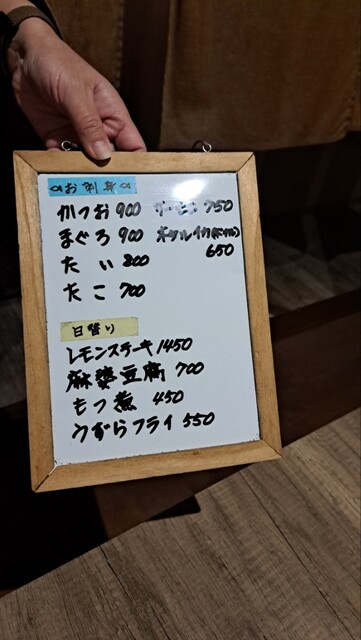 お刺身
かつお 900 サーモン 750
まぐろ 900 ホタルイカ(ボイル)
650
たい 800
たこ 700
日替り
レモンステーキ 1450
麻婆豆腐 700
もつ煮 450
うずらフライ 550